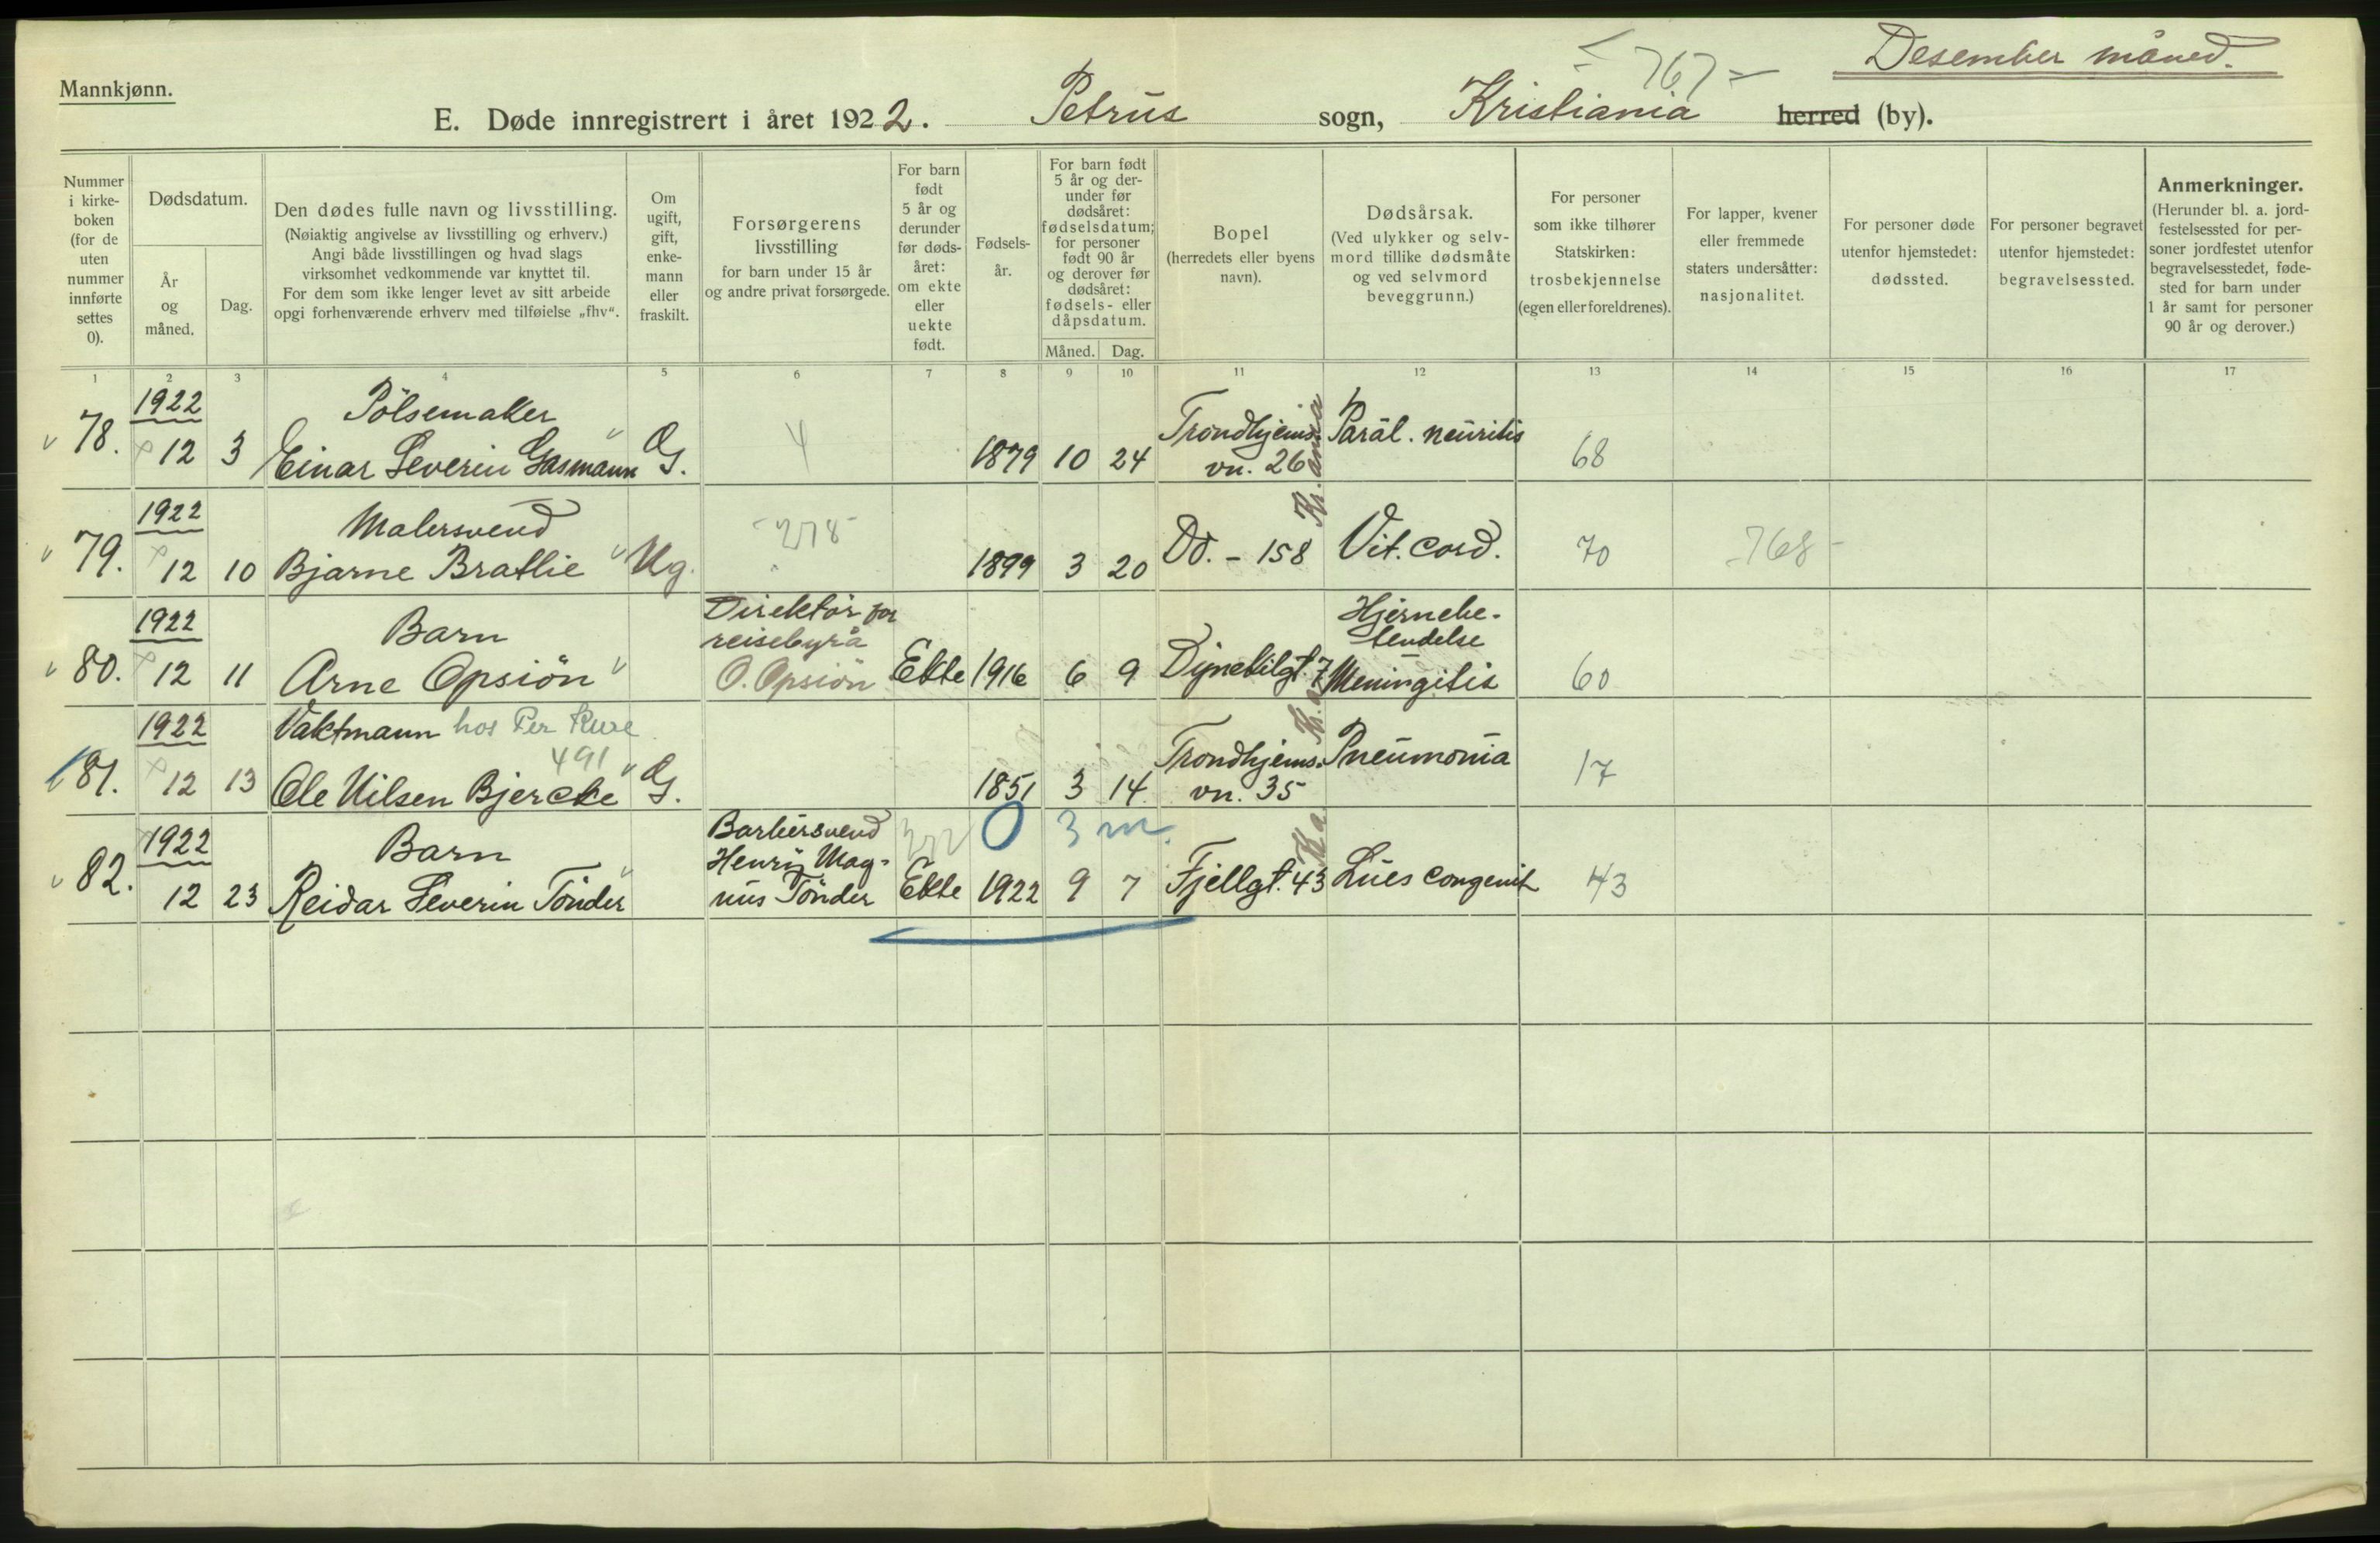 Desember måned.
- 767 -
Mannkjønn.
E. Døde innregistrert i året 1922. Petrus sogn, Kristiania herred (by).
Nummer
i kirke-
boken
(for de
uten
nummer
innførte
settes
0).
Dødsdatum.
År
og
måned.
Dag.
Den dødes fulle navn og livsstilling.
(Nøiaktig angivelse av livsstilling og erhverv.)
Angi både livsstillingen og hvad slags
virksomhet vedkommende var knyttet til.
For dem som ikke lenger levet av sitt arbeide
opgi forhenværende erhverv med tilføielse „fhv“.
Om
ugift,
gift,
enke-
mann
eller
fraskilt.
Forsørgerens
livsstilling
for barn under 15 år
og andre privat forsørgede.
For barn
født
5 år og
derunder
før døds-
året:
om ekte
eller
uekte
født.
Fødsels-
år.
For barn født
5 år og der-
under før
dødsåret:
fødselsdatum;
for personer
født 90 år
og derover før
dødsåret:
fødsels- eller
dåpsdatum.
Måned. Dag.
Bopel
(herredets eller byens
navn).
Dødsårsak.
(Ved ulykker og selv-
mord tillike dødsmåte
og ved selvmord
beveggrunn.)
For personer
som ikke tilhører
Statskirken:
trosbekjennelse
(egen eller foreldrenes).
For lapper, kvener
eller fremmede
staters undersåtter:
nasjonalitet.
For personer døde
utenfor hjemstedet:
dødssted.
For personer begravet
utenfor hjemstedet:
begravelsessted.
Anmerkninger.
(Herunder bl. a. jord-
festelsessted for per-
soner jordfestet utenfor
begravelsesstedet, føde-
sted for barn under
1 år samt for personer
90 år og derover.)
1 2 3 4 5 6 7 8 9 10 11 12 13 14 15 16 17
1922 Pölsemaker Trondhjems- Paral. neuritis
78. 12 3 Einar Severin Gasmann G. 4 1879 10 24 vn. 26 68
Kr.ania
1922 Malersvend
79. 12 10 Bjarne Bratlie Ug. -278- 1899 3 20 Do. - 158 Vit. cord. 70 -768-
1922 Barn Direktör for Hjernebe-
reisebyrå tendelse
80. 12 11 Arne Opsiön O. Opsiön Ekte 1916 6 9 Dynekilgt. 7 Meningitis 60
1922 Vaktmann hos Per Kure Trondhjems- Pneumonia
491
81. 12 13 Ole Nilsen Bjercke G. 1851 3 14 vn. 35 17
0 3 m
1922 Barn Barbersvend
Henry Mag-
82. 12 23 Reidar Severin Tönder nus Tönder Ekte 1922 9 7 Fjellgt. 43 Lues congenit 43